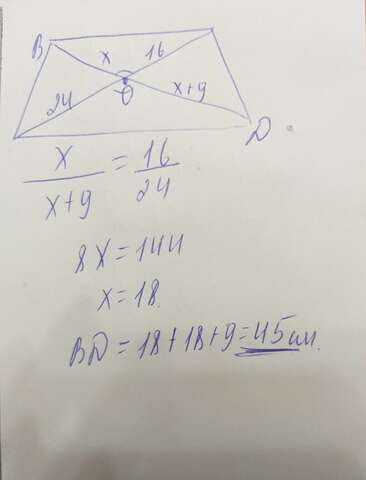 B x 16
24 O x+9
D
x/x+9 = 16/24
8x=144
x=18.
BD=18+18+9=45см.